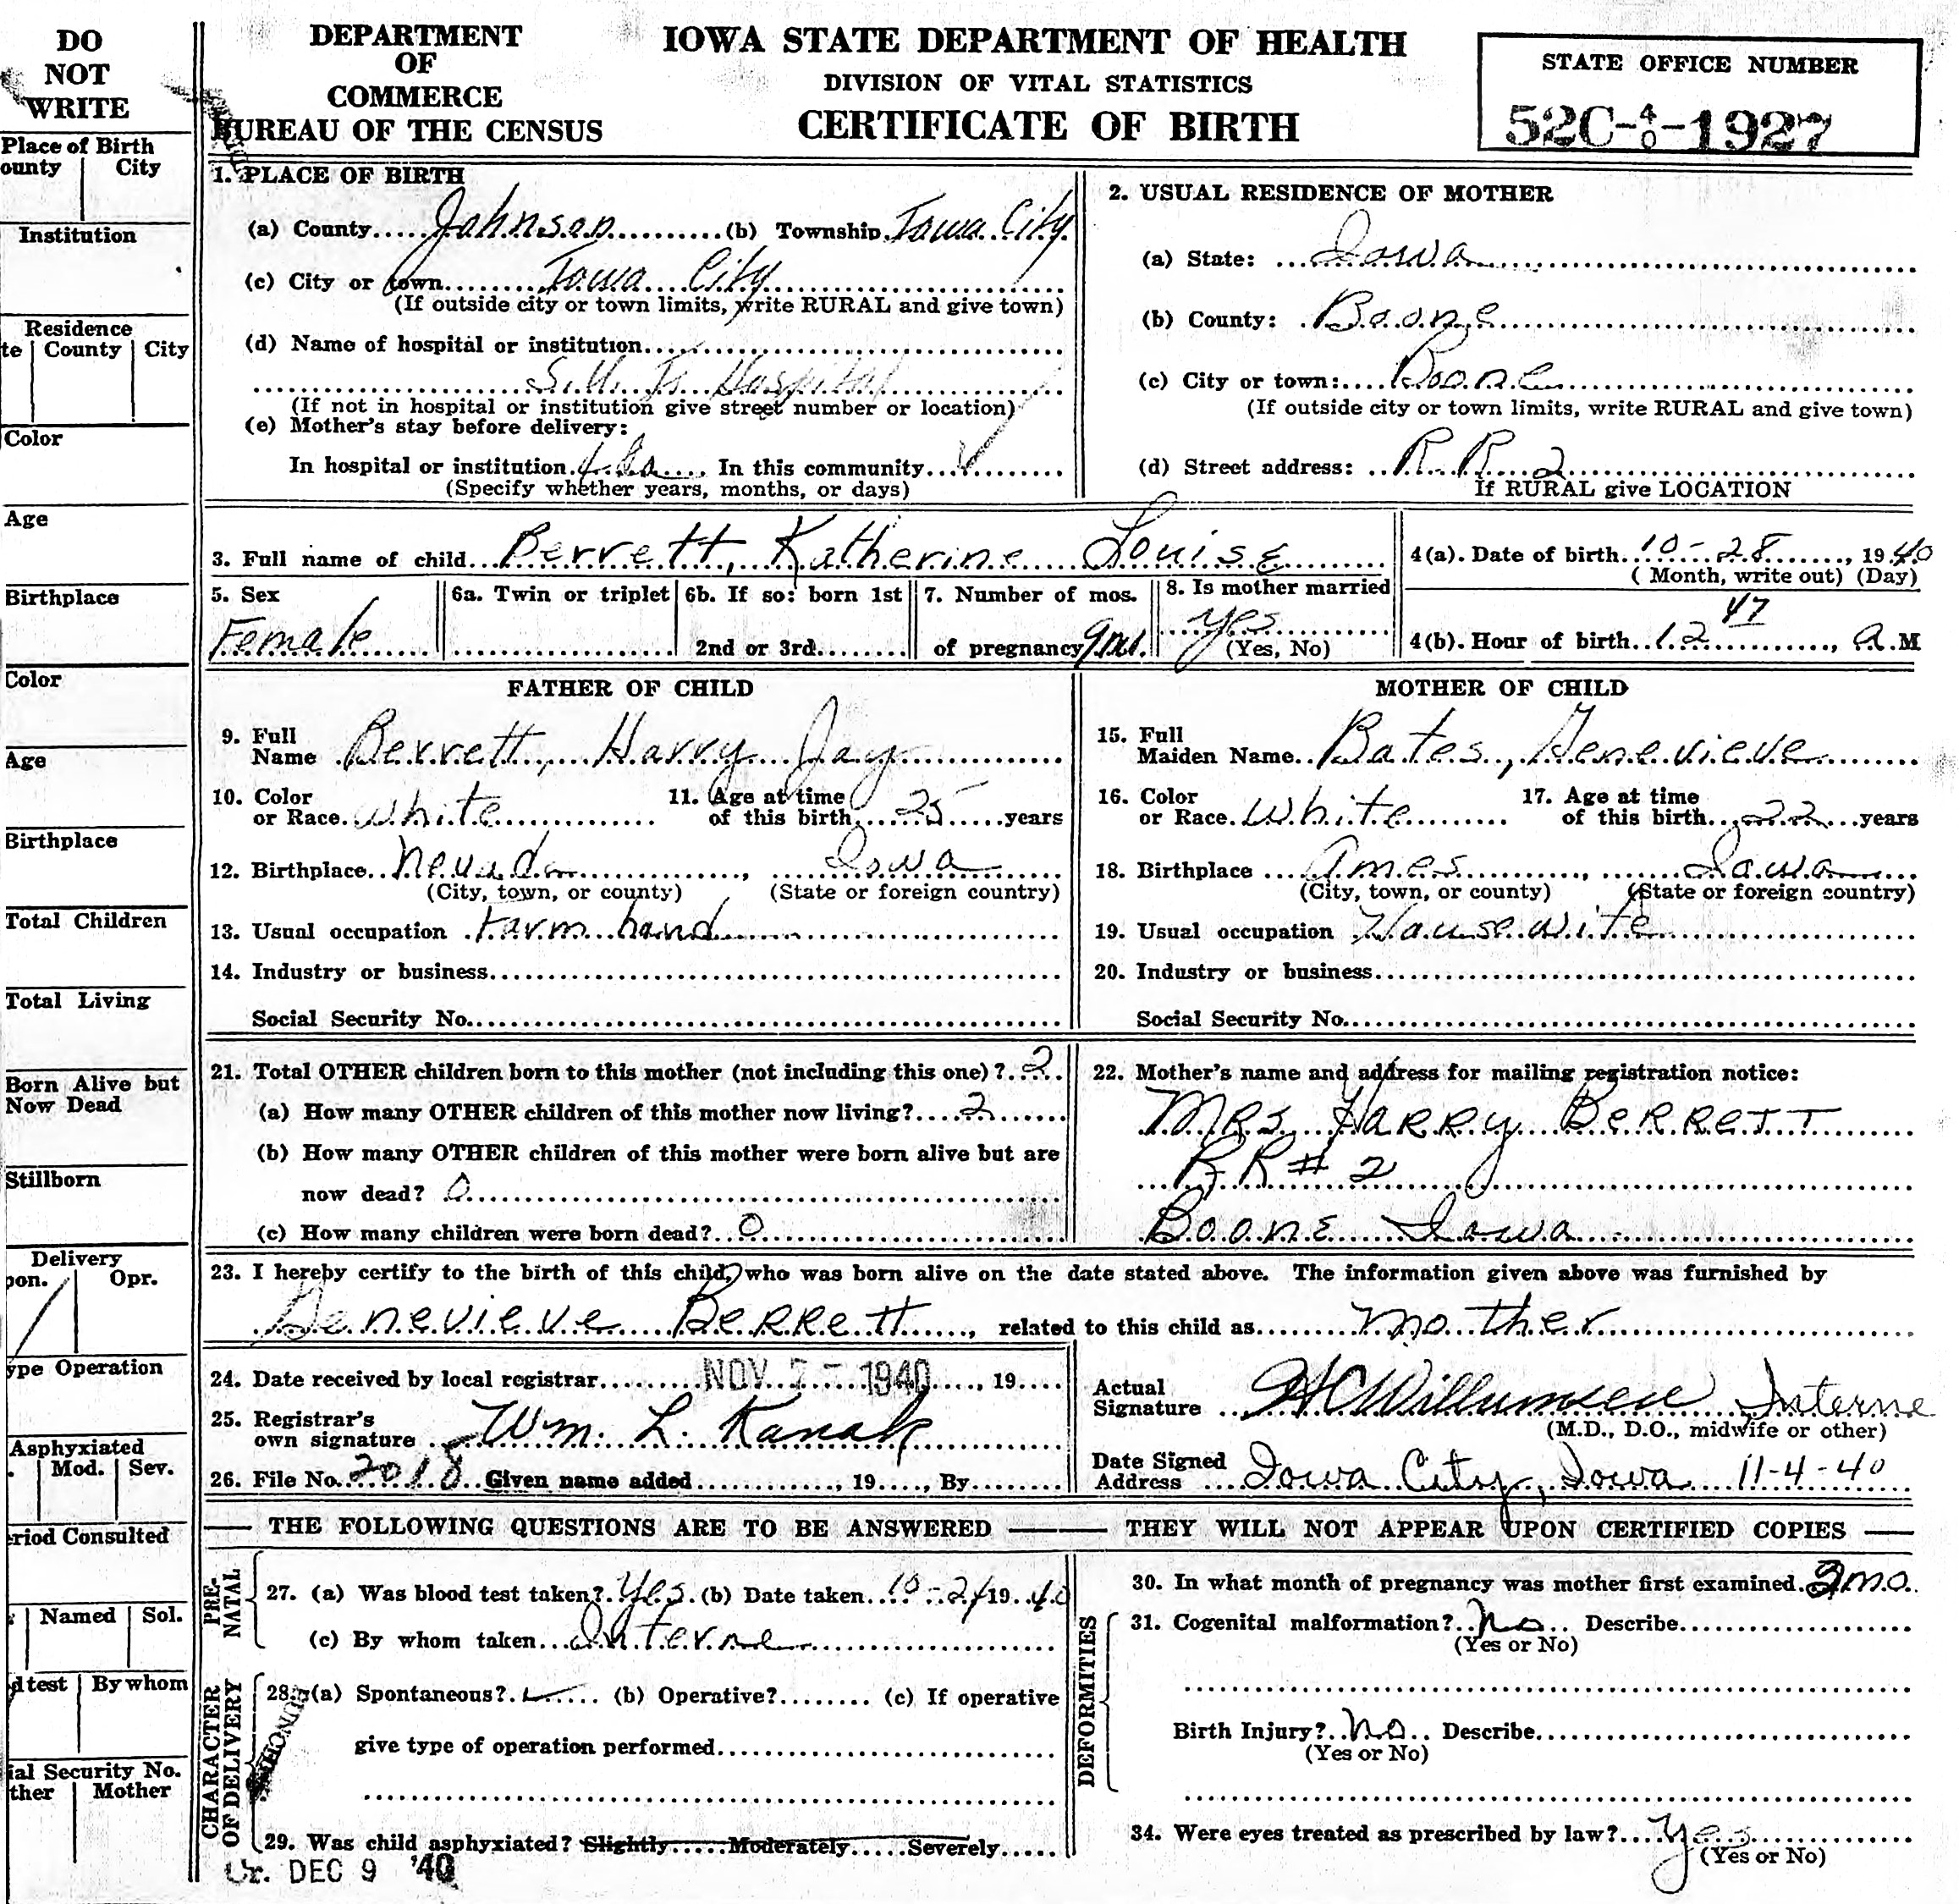 DO
NOT
WRITE
Place of Birth
ounty City
Institution
Residence
te County City
Color
Age
Birthplace
Color
Age
Birthplace
Total Children
Total Living
Born Alive but
Now Dead
Stillborn
Delivery
pon. Opr.
ype Operation
Asphyxiated
. Mod. Sev.
eriod Consulted
Named Sol.
d test By whom
ial Security No.
ther Mother
DEPARTMENT
OF
COMMERCE
BUREAU OF THE CENSUS
IOWA STATE DEPARTMENT OF HEALTH
DIVISION OF VITAL STATISTICS
CERTIFICATE OF BIRTH
STATE OFFICE NUMBER
52C-4/0-1927
1. PLACE OF BIRTH
(a) County Johnson (b) Township Iowa City
(c) City or town Iowa City
(If outside city or town limits, write RURAL and give town)
(d) Name of hospital or institution
S.U. I. Hospital
(If not in hospital or institution give street number or location)
(e) Mother's stay before delivery:
In hospital or institution In this community
(Specify whether years, months, or days)
2. USUAL RESIDENCE OF MOTHER
(a) State: Iowa
(b) County: Boone
(c) City or town: Boone
(If outside city or town limits, write RURAL and give town)
(d) Street address: R. R. 2
If RURAL give LOCATION
3. Full name of child Berrett, Katherine Louise
4(a). Date of birth 10-28, 1940
(Month, write out) (Day)
5. Sex Female
6a. Twin or triplet
6b. If so: born 1st
2nd or 3rd
7. Number of mos.
of pregnancy 9 m.
8. Is mother married
Yes
(Yes, No)
4(b). Hour of birth 12 47, a.M
FATHER OF CHILD
9. Full
Name Berrett, Harry Jay
10. Color
or Race White
11. Age at time
of this birth 25 years
12. Birthplace Nevada, Iowa
(City, town, or county) (State or foreign country)
13. Usual occupation Farm hand
14. Industry or business
Social Security No.
MOTHER OF CHILD
15. Full
Maiden Name Bates, Genevieve
16. Color
or Race White
17. Age at time
of this birth 22 years
18. Birthplace Ames, Iowa
(City, town, or county) (State or foreign country)
19. Usual occupation Housewife
20. Industry or business
Social Security No.
21. Total OTHER children born to this mother (not including this one)? 2
(a) How many OTHER children of this mother now living? 2
(b) How many OTHER children of this mother were born alive but are
now dead? 0
(c) How many children were born dead? 0
22. Mother's name and address for mailing registration notice:
Mrs Harry Berrett
RR # 2
Boone Iowa
23. I hereby certify to the birth of this child, who was born alive on the date stated above. The information given above was furnished by
Genevieve Berrett, related to this child as Mother
24. Date received by local registrar NOV 7 - 1940, 19
25. Registrar's
own signature Wm. L. Kanak
26. File No. 2018 Given name added , 19 , By
Actual
Signature HC Willumsen Interne
(M.D., D.O., midwife or other)
Date Signed
Address Iowa City, Iowa 11-4-40
THE FOLLOWING QUESTIONS ARE TO BE ANSWERED — THEY WILL NOT APPEAR UPON CERTIFIED COPIES
PRE-
NATAL
27. (a) Was blood test taken? Yes (b) Date taken 10-21 1940
(c) By whom taken Interne
CHARACTER
OF DELIVERY
28. (a) Spontaneous? ✓ (b) Operative? (c) If operative
give type of operation performed
29. Was child asphyxiated? Slightly Moderately Severely
Cr. DEC 9 '40
30. In what month of pregnancy was mother first examined mo.
DEFORMITIES
31. Cogenital malformation? No Describe
(Yes or No)
Birth Injury? No Describe
(Yes or No)
34. Were eyes treated as prescribed by law? Yes
(Yes or No)